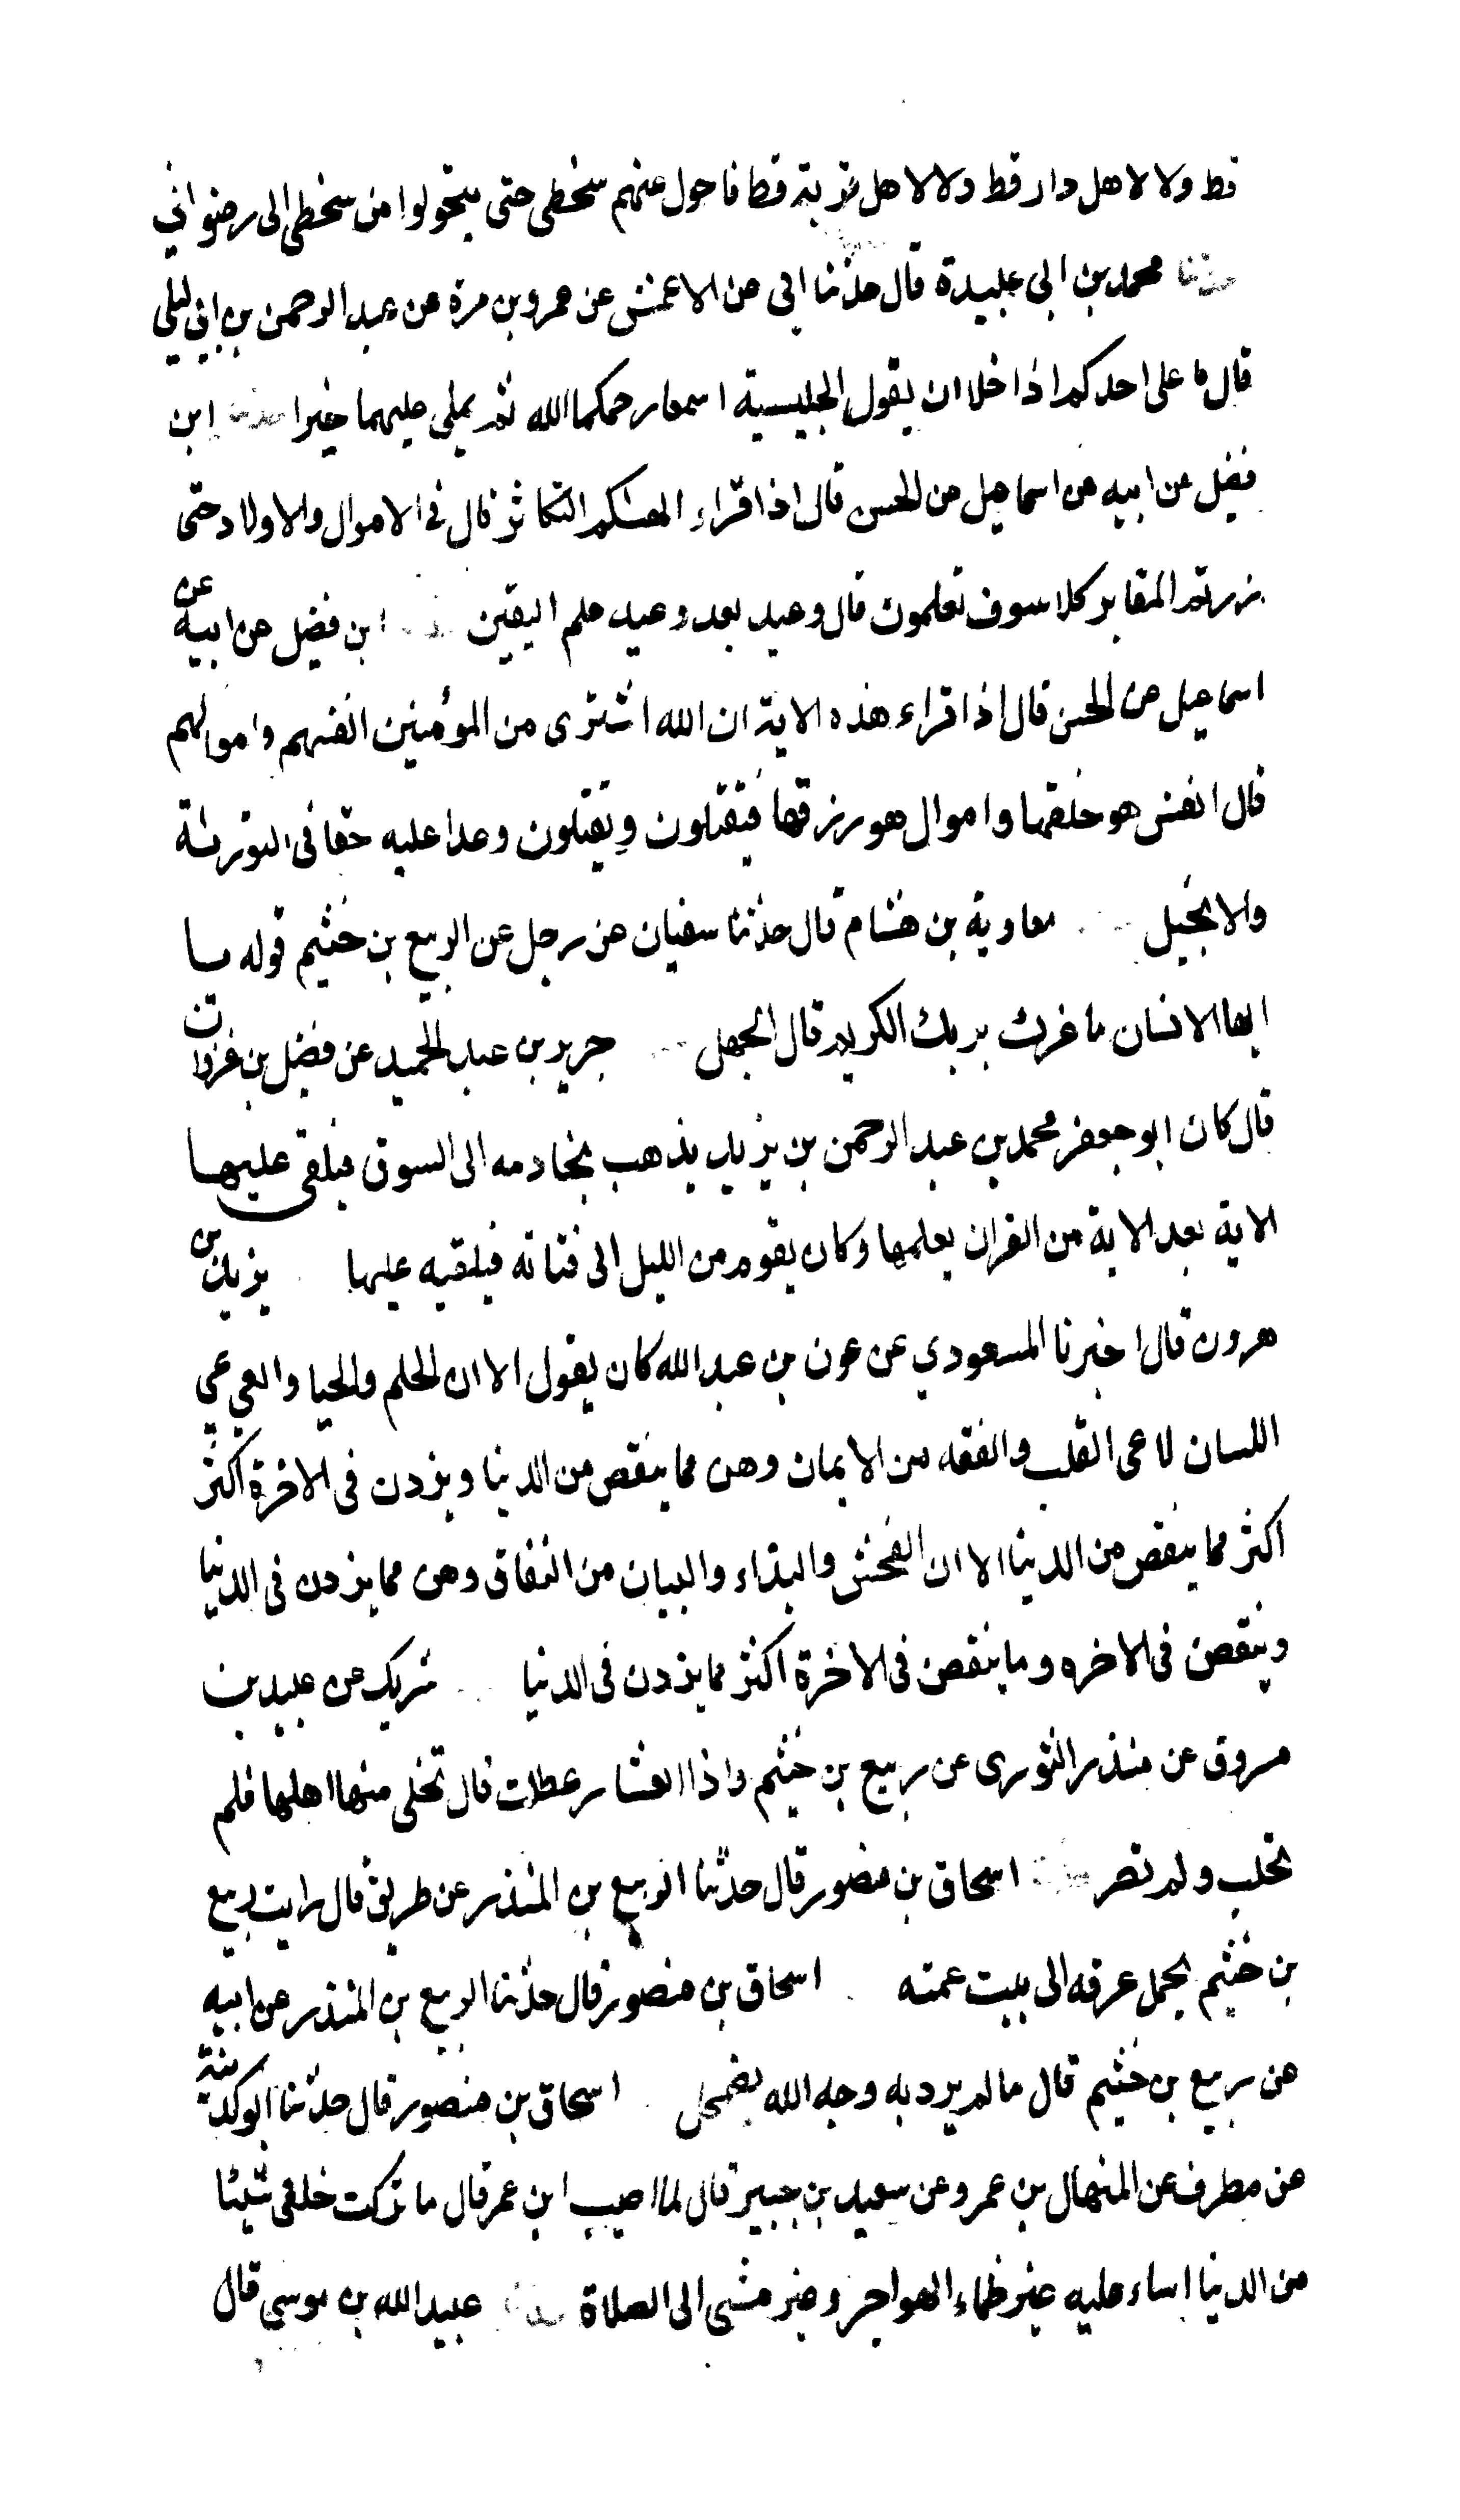 قط ولا لاهل دار قط ولا لاهل قرية قط فاحول عنهم سخطى حتى يتحولوا من سخطى الى رضواني
حدثنا محمد بن ابي عبيدة قال حدثنا ابى عن الاعمش عن عمرو بن مرة عن عبد الرحمن بن ابي ليلى
قال ما على احدكم اذا خلا ان يقول الجليسية اسمعا رحمكما الله ثم يملى عليهما خيرا حدثنا ابن
فضيل عن ابيه عن اسماعيل عن الحسن قال اذا قراء الهاكم التكاثر قال فى الاموال والاولاد حتى
زرتم المقابر كلا سوف تعلمون قال وعيد بعد وعيد علم اليقين ابن فضيل عن ابيه عن
اسماعيل عن الحسن قال اذا قراء هذه الاية ان الله اشترى من المؤمنين انفسهم واموالهم
قال انفس هو خلقها واموال هو رزقها فيقتلون ويقتلون وعدا عليه حقا فى التورية
والانجيل معاوية بن هشام قال حدثنا سفيان عن رجل عن الربيع بن خثيم قوله يا
ايها الانسان ما غرك بربك الكريم قال الجهل جرير بن عبد الحميد عن فضيل بن غزوان
قال كان ابو جعفر محمد بن عبد الرحمن بن يزيد يذهب بخادمه الى السوق فيلقى عليها
الاية بعد الاية من القران يعلمها وكان يقوم من الليل الى فتاته فيلقيه عليها يزيد بن
هرون قال اخبرنا المسعودي عن عون بن عبد الله كان يقول الا ان الحلم والحيا والعي عي
اللسان لا عى القلب والفقه من الايمان وهن مما ينقص من الدينا ويزدن فى الاخرة اكثر
اكثر مما ينقص من الدينا الا ان الفحش والبذاء والبيان من النفاق وهن مما يزدن فى الدنيا
وينقصن فى الاخره وما ينقصن فى الاخرة اكثر مما يزدن فى الدنيا شريك عن عبيد بن
مروق عن منذر الثورى عن ربيع بن خثيم واذا العشار عطلت قال تخلى منها اهلها فلم
تحلب ولم تصر حدثنا اسحاق بن منصور قال حدثنا الربيع بن المنذر عن طريق قال رايت ربيع
بن خثيم يحمل عرقه الى بيت عمته اسحاق بن منصور قال حدثنا الربيع بن المنذر عن ابيه
عن ربيع بن خثيم قال ما لم يرد به وجه الله يضمحل اسحاق بن منصور قال حدثنا ابو كدينة
عن مطرف عن المنهال بن عمرو عن سعيد بن جبير قال لما اصيب ابن عمر قال ما تركت خلفى شيئا
من الدنيا اساء عليه غير ظماء الهواجر وغير مشى الى الصلاة حدثنا عبيد الله بن موسى قال